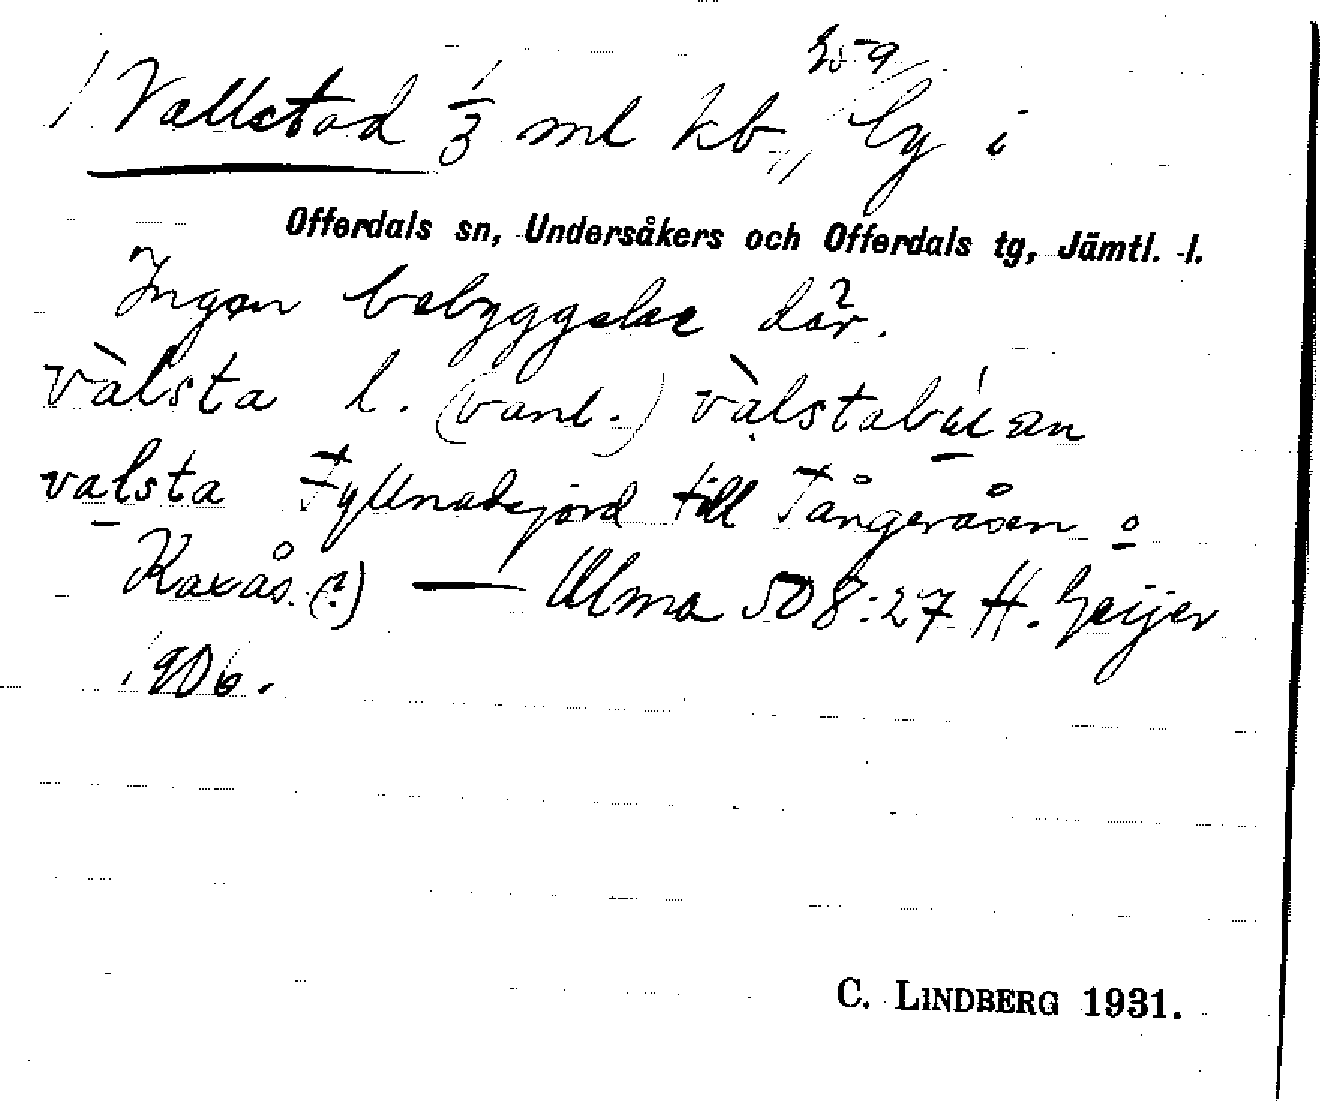 Vallstad 1/3 ml kb, by i
Offerdals sn, Undersåkers och Offerdals tg, Jämtl. l.
Ingen bebyggelse där.
vàlsta l. (vanl.) vàlstabúan
valsta Fyllnadsjord till Tångeråsen o
Kaxås. (?) — Ulma 508:27 H. Geijer
1906.
C. LINDBERG 1931.